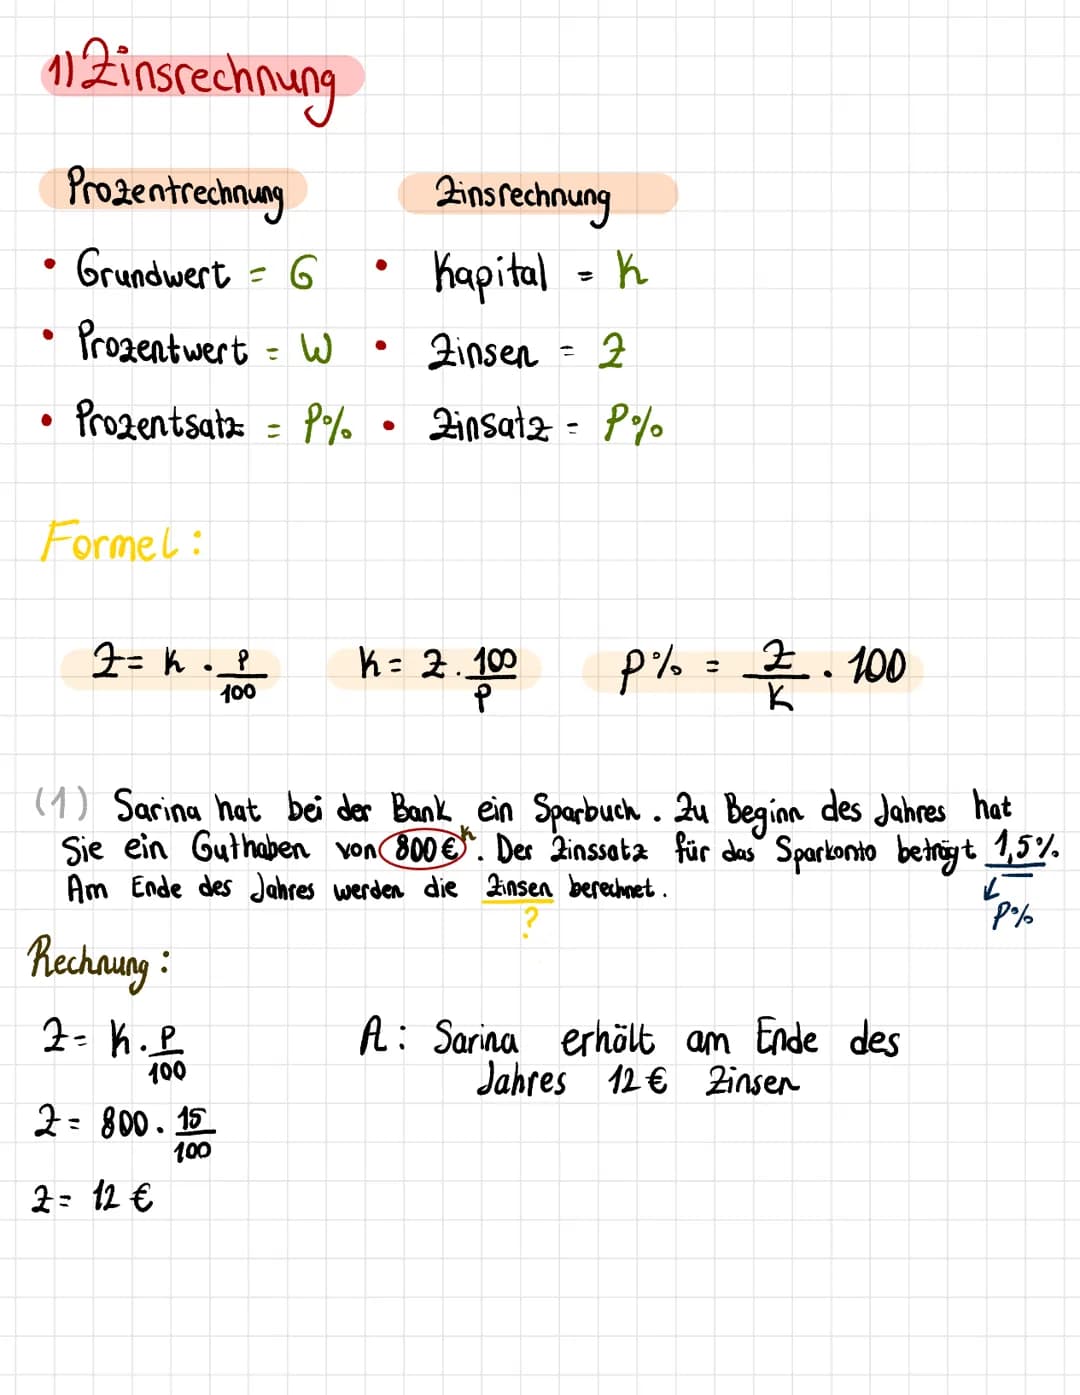 1) Zinsrechnung
Prozentrechnung Zinsrechnung
• Grundwert = G • Kapital = K
• Prozentwert = W • Zinsen = Z
• Prozentsatz = P% • Zinsatz = P%
Formel:
Z = K · P/100 K = Z · 100/P P% = Z/K · 100
(1) Sarina hat bei der Bank ein Sparbuch. Zu Beginn des Jahres hat
Sie ein Guthaben von 800 € K. Der Zinssatz für das Sparkonto beträgt 1,5%.
Am Ende des Jahres werden die Zinsen berechnet.
? P%
Rechnung:
Z = K · P/100 A: Sarina erhölt am Ende des
Jahres 12 € Zinsen
Z = 800 · 15/100
Z = 12 €